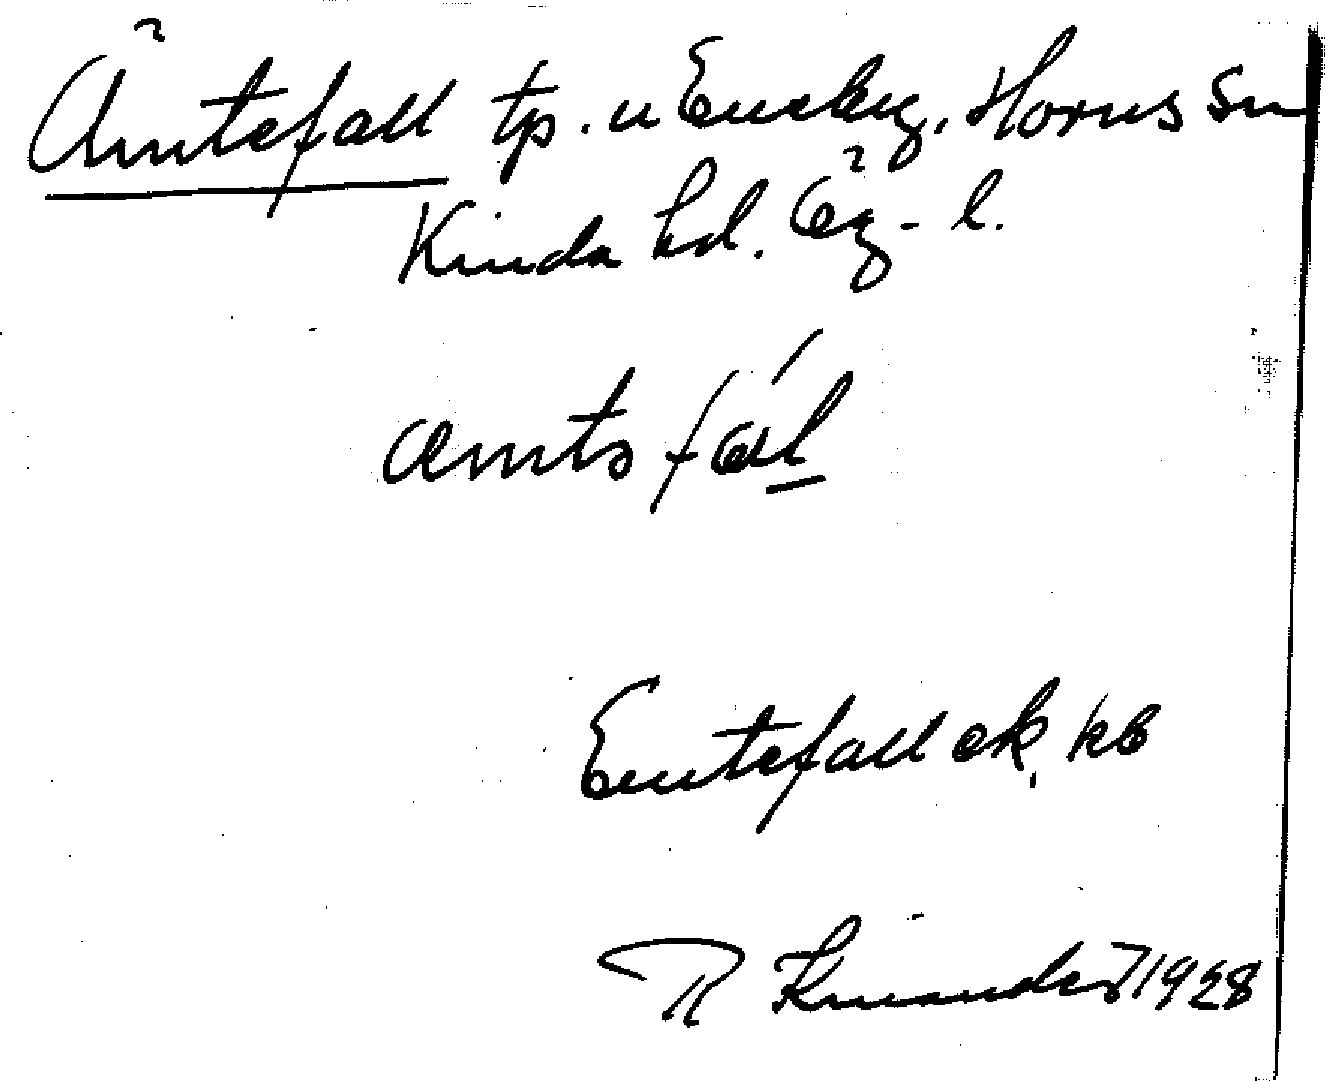 Ämtefall tp. u Eneby, Horns sn
Kinda hd. Ög-l.
æmtsfal
Emtefall ek, kb
R Kinander 1928